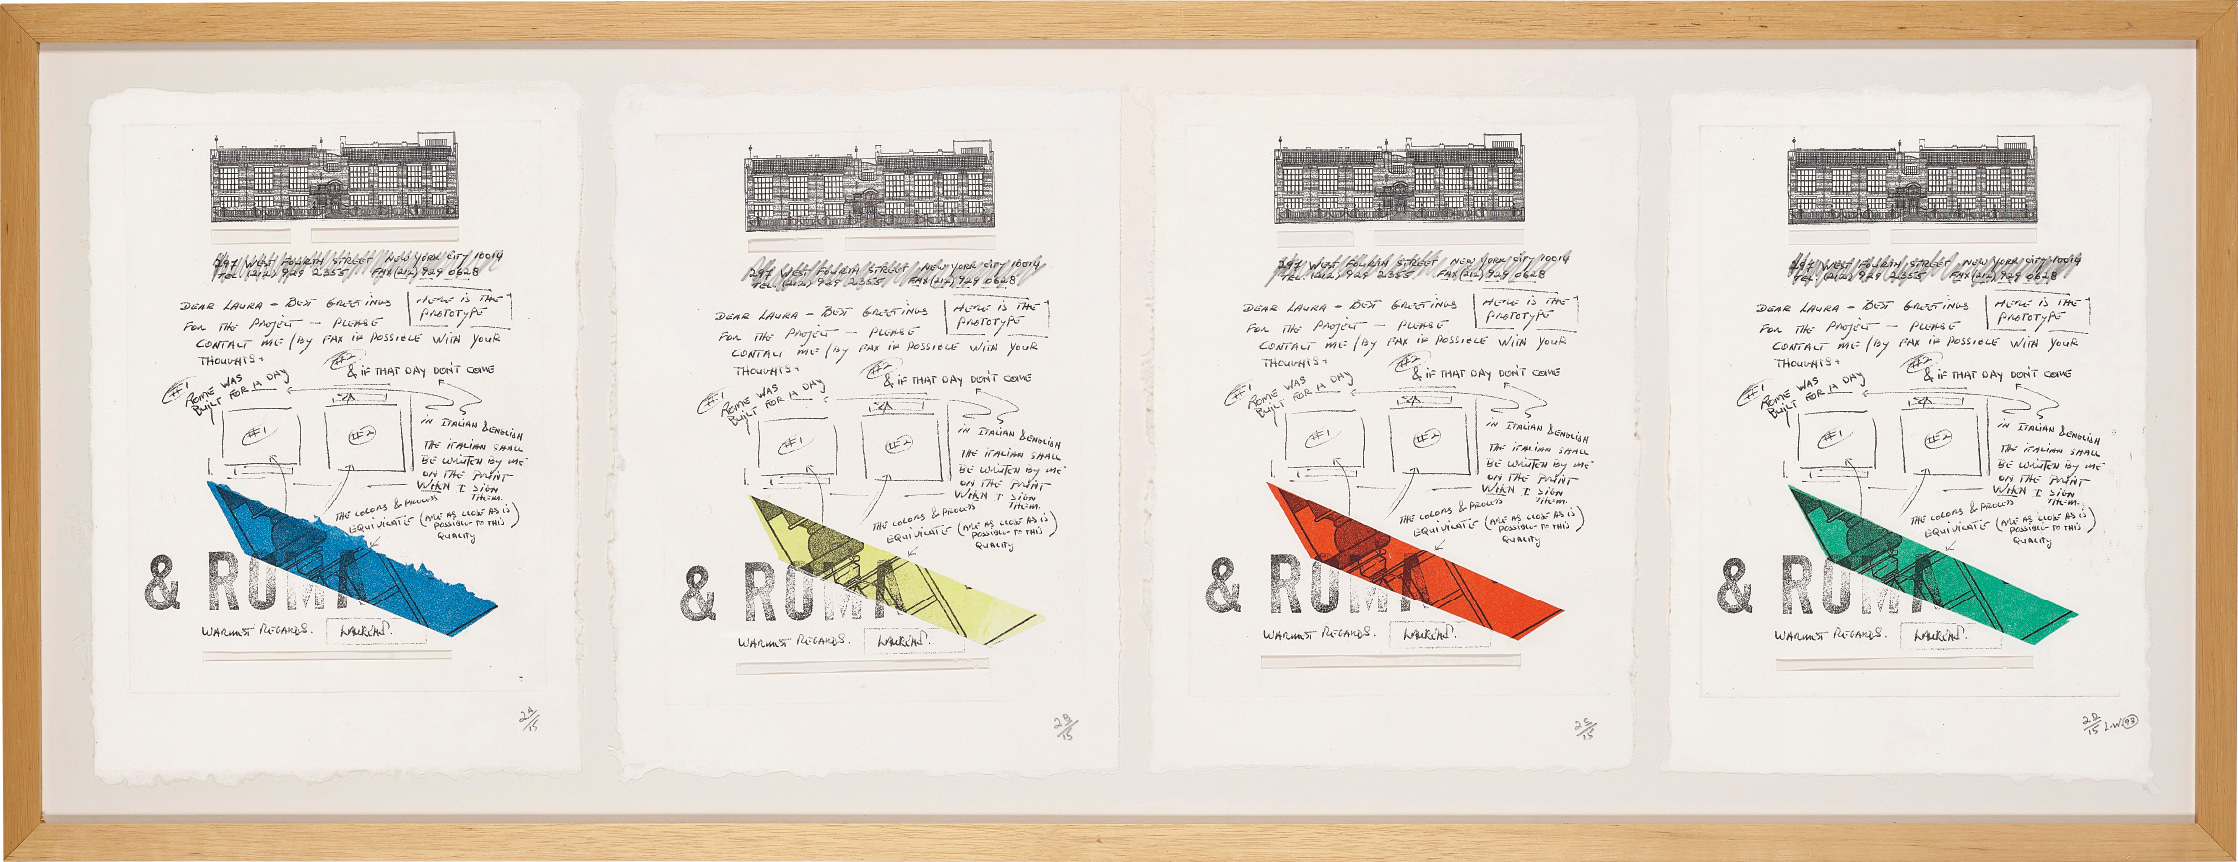 297 WEST FOURTH STREET NEW YORK CITY 10014
TEL. (212) 929 2355 FAX (212) 929 0628
DEAR LAURA – BEST GREETINGS
HERE IS THE
PROTOTYPE
FOR THE PROJECT – PLEASE
CONTACT ME / BY FAX IF POSSIBLE WITH YOUR
THOUGHTS.
#1
ROME WAS
BUILT FOR A DAY
#2
& IF THAT DAY DON'T COME
#1
#2
IN ITALIAN & ENGLISH
THE ITALIAN SHALL
BE WRITTEN BY ME
ON THE PRINT
WHEN I SIGN
THEM.
THE COLORS & PROCESS
EQUIVICATE (ARE AS CLOSE AS IS
POSSIBLE TO THIS)
QUALITY
& ROM
WARMEST REGARDS.
2A/15
297 WEST FOURTH STREET NEW YORK CITY 10014
TEL. (212) 929 2355 FAX (212) 929 0628
DEAR LAURA – BEST GREETINGS
HERE IS THE
PROTOTYPE
FOR THE PROJECT – PLEASE
CONTACT ME / BY FAX IF POSSIBLE WITH YOUR
THOUGHTS.
#1
ROME WAS
BUILT FOR A DAY
#2
& IF THAT DAY DON'T COME
#1
#2
IN ITALIAN & ENGLISH
THE ITALIAN SHALL
BE WRITTEN BY ME
ON THE PRINT
WHEN I SIGN
THEM.
THE COLORS & PROCESS
EQUIVICATE (ARE AS CLOSE AS IS
POSSIBLE TO THIS)
QUALITY
& ROM
WARMEST REGARDS.
2B/15
297 WEST FOURTH STREET NEW YORK CITY 10014
TEL. (212) 929 2355 FAX (212) 929 0628
DEAR LAURA – BEST GREETINGS
HERE IS THE
PROTOTYPE
FOR THE PROJECT – PLEASE
CONTACT ME / BY FAX IF POSSIBLE WITH YOUR
THOUGHTS.
#1
ROME WAS
BUILT FOR A DAY
#2
& IF THAT DAY DON'T COME
#1
#2
IN ITALIAN & ENGLISH
THE ITALIAN SHALL
BE WRITTEN BY ME
ON THE PRINT
WHEN I SIGN
THEM.
THE COLORS & PROCESS
EQUIVICATE (ARE AS CLOSE AS IS
POSSIBLE TO THIS)
QUALITY
& ROM
WARMEST REGARDS.
2C/15
297 WEST FOURTH STREET NEW YORK CITY 10014
TEL. (212) 929 2355 FAX (212) 929 0628
DEAR LAURA – BEST GREETINGS
HERE IS THE
PROTOTYPE
FOR THE PROJECT – PLEASE
CONTACT ME / BY FAX IF POSSIBLE WITH YOUR
THOUGHTS.
#1
ROME WAS
BUILT FOR A DAY
#2
& IF THAT DAY DON'T COME
#1
#2
IN ITALIAN & ENGLISH
THE ITALIAN SHALL
BE WRITTEN BY ME
ON THE PRINT
WHEN I SIGN
THEM.
THE COLORS & PROCESS
EQUIVICATE (ARE AS CLOSE AS IS
POSSIBLE TO THIS)
QUALITY
& ROM
WARMEST REGARDS.
2D/15 L.W. 93